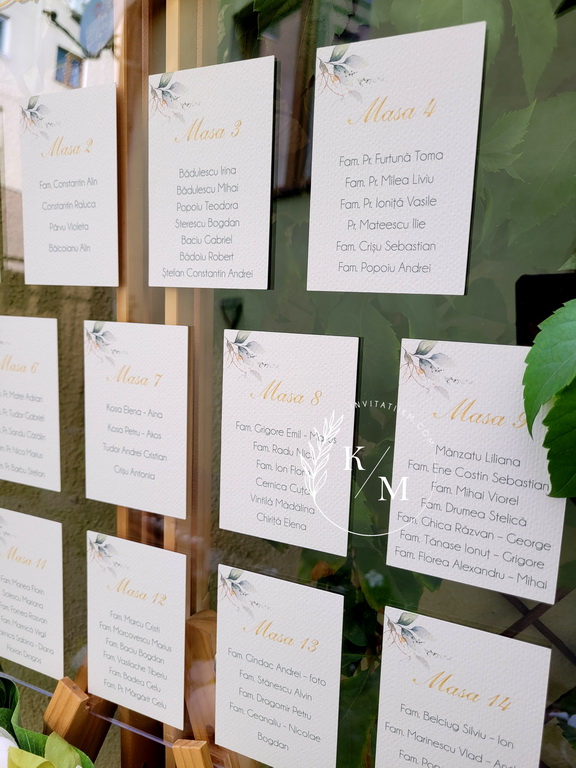 Masa 2
Fam. Constantin Alin
Constantin Raluca
Pârvu Violeta
Băicoianu Alin
Masa 3
Bădulescu Irina
Bădulescu Mihai
Popoiu Teodora
Sterescu Bogdan
Baciu Gabriel
Bădoiu Robert
Ștefan Constantin Andrei
Masa 4
Fam. Pr. Furtună Toma
Fam. Pr. Milea Liviu
Fam. Pr. Ioniță Vasile
Pr. Mateescu Ilie
Fam. Crișu Sebastian
Fam. Popoiu Andrei
Masa 6
Pr. Matei Adrian
Pr. Tudor Gabriel
Pr. Nicu Marius
Masa 7
Kosa Elena - Aina
Kosa Petru - Akos
Tudor Andrei Cristian
Crișu Antonia
Masa 8
Fam. Grigore Emil -
Fam. Radu
Fam. Ion
Cernica
Vintilă Mădălina
Chiriță Elena
Masa 9
Mânzatu Liliana
Fam. Ene Costin Sebastian
Fam. Mihai Viorel
Fam. Drumea Stelică
Fam. Ghica Răzvan - George
Fam. Tănase Ionuț - Grigore
Fam. Florea Alexandru - Mihai
K / M
Masa 11
Masa 12
Fam. Marcu Cristi
Fam. Morcovescu Marius
Fam. Baciu Bogdan
Fam. Vasilache Tiberiu
Fam. Badea Gelu
Fam. Pr. Mărgărit Gelu
Masa 13
Fam. Cindac Andrei - foto
Fam. Stănescu Alvin
Fam. Dragomir Petru
Fam. Geanaliu - Nicolae
Bogdan
Masa 14
Fam. Belciug Silviu - Ion
Fam. Marinescu Vlad -